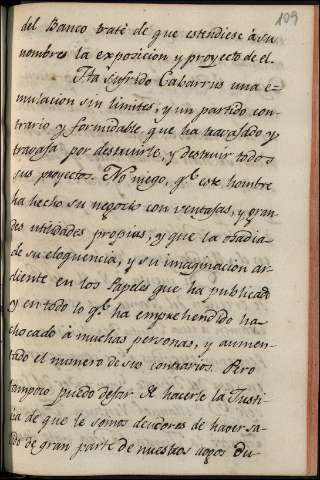 109
del Banco traté de que estendiese à su
nombres la exposicion y proyecto de el.
Ha sufrido Cabarrus una e-
mulacion sin limites, y un partido con-
trario y formidable, que ha travajado y
travaja por destruirle, y destruir todos
sus proyectos. No niego, q.e este hombre
ha hecho su negocio con ventajas, y gran-
des utilidades propias, y que la osadia
de su eloquencia, y su imaginacion ar-
diente en los Papeles que ha publicado
y en todo lo q.e ha emprehendido ha
chocado à muchas personas, y aumen-
tado el numero de sus contrarios. Pero
tampoco puedo dejar de hacerle la Justi-
cia de que le somos deudores de haver sa-
lido de gran parte de nuestros aogos du-